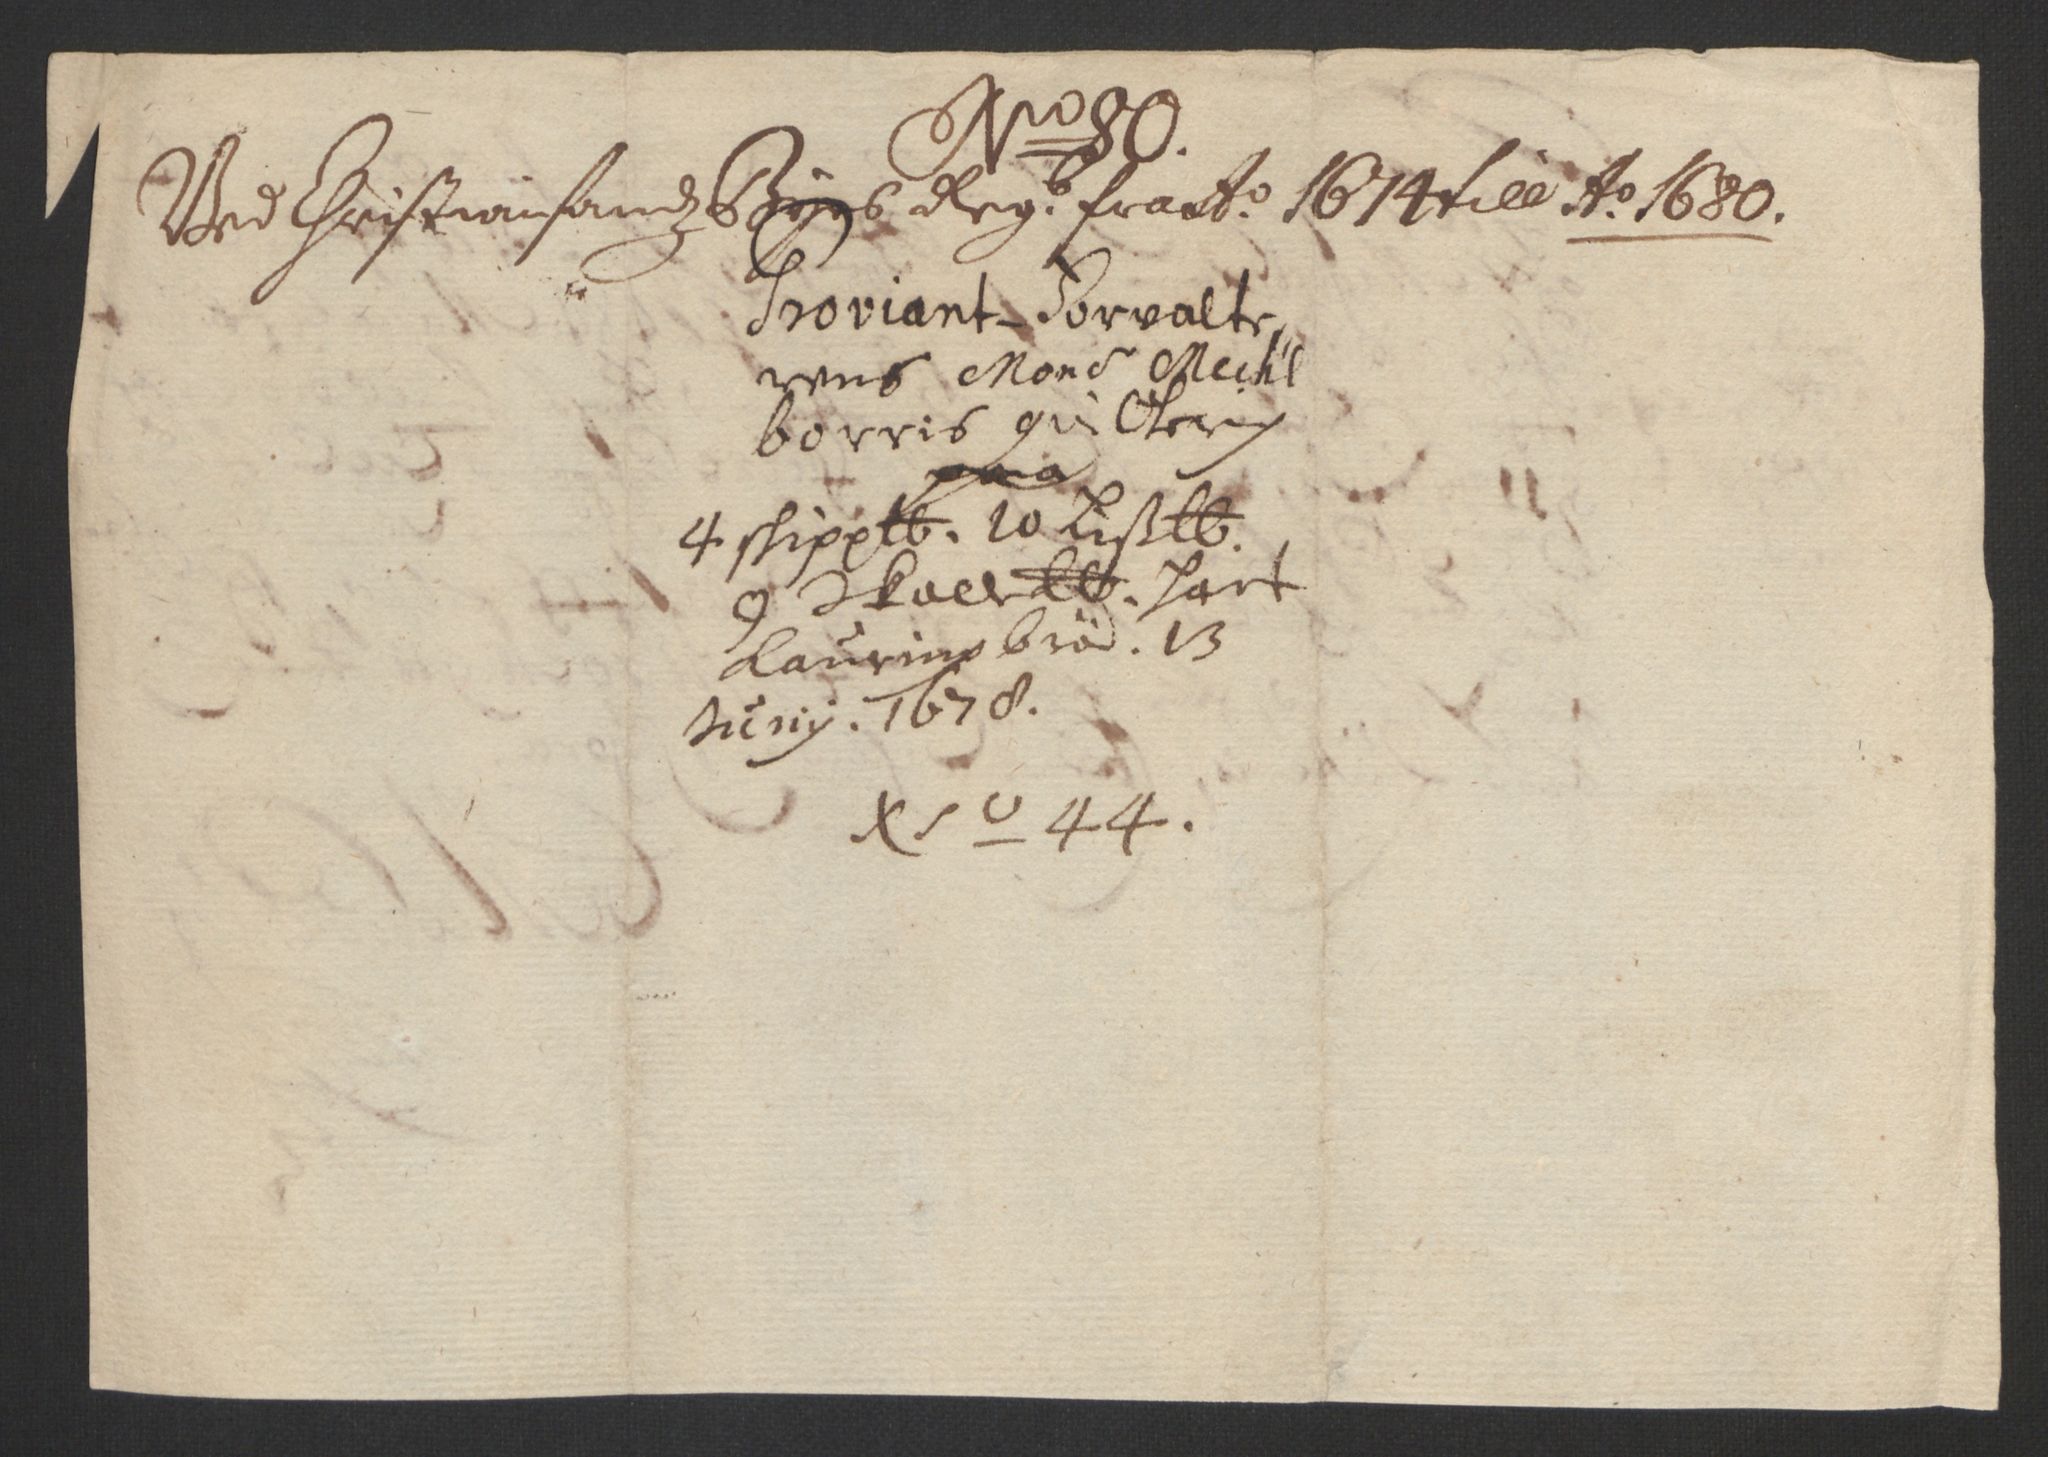 No 80.
Ved Christiansandz Byes Reg: fra Ao. 1674 till Ao. 1680.
Proviant-Forvalte,
rens Mons
borris qvitering
paa
4 skipp℔. 10 Lisß℔.
9 Skaal℔. hart
Laurings bröd. 13
Junij. 1678.
No 44.